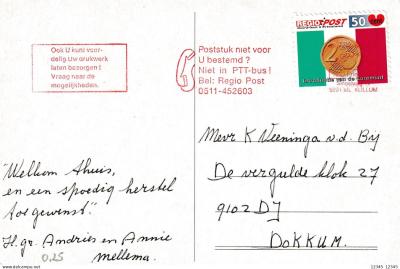 Ook U kunt voor-
delig Uw drukwerk
laten bezorgen !
Vraag naar de
mogelijkheden.
Poststuk niet voor
U bestemd ?
Niet in PTT-bus!
Bel: Regio Post
0511-452603
REGIO POST
50
"Wellkom thuis,
en een spoedig herstel
toegewenst."
H. gr. Andries en Annie
Mellema.
0,25
Mevr K Veeninga v.d. Bij
De vergulde klok 27
9102 DJ
DOKKUM.
12345 12345